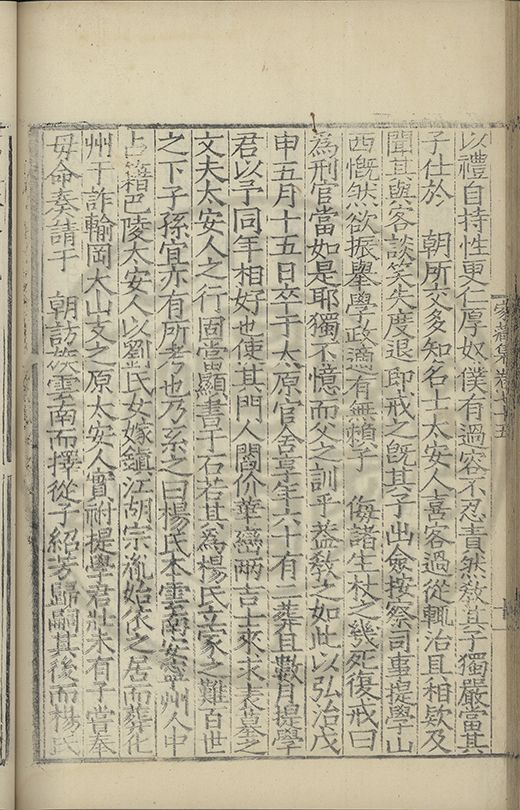 以禮自持性更仁厚奴僕有過容不忍責然教其子獨嚴當其
子仕於　朝所交多知名士太安人喜客過從輒治具相欵及
聞其與客談笑失度退即戒之旣其子出僉按察司事提學山
西慨然欲振舉學政適有無賴子　侮諸生杖之幾死復戒曰
為刑官當如是耶獨不憶而父之訓乎葢敎之如此以弘治戊
申五月十五日卒于太原官舍享年六十有二葬且數月提學
君以予同年相好也使其門人閻价華巒兩吉士來求表墓之
文夫太安人之行固當顯書于石若其為楊氏立家之難百世
之下子孫宜亦有所考也乃系之曰楊氏本雲南安寧州人中
占籍巴陵太安人以劉氏女嫁鎮江胡宗胤始依之居而葬化
州于詐輸岡大山支之原太安人實祔提學君壯未有子嘗奉
母命奏請于　朝訪族雲南而擇從子紹芳歸嗣其後而楊氏
家藏集卷七十五